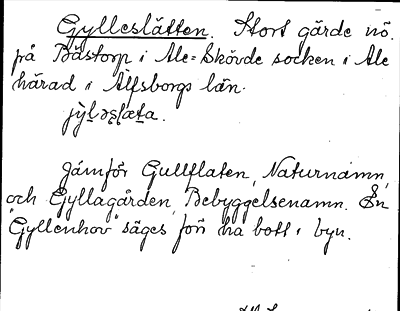 Gylleslätten. Stort gärde nö.
på Bästorp i Ale=Skövde socken i Ale
härad i Älfsborgs län.
Jämför Gullflaten, Naturnamn,
och Gyllagården, Bebyggelsenamn. En
"Gyllenhov" säges förr ha bott i byn.